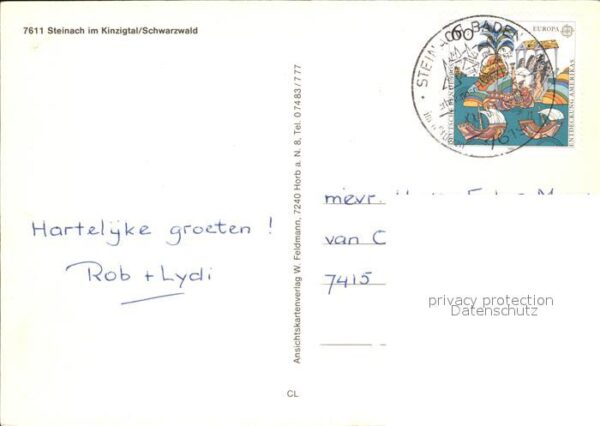 7611 Steinach im Kinzigtal/Schwarzwald
Hartelijke groeten !
Rob + Lydi
Ansichtskartenverlag W. Feldmann, 7240 Horb a. N. 8, Tel. 0 74 83 / 7 77
CL
60
EUROPA
ENTDECKUNG AMERIKAS
STEINACH BADEN
mevr.
van C
7415
privacy protection
Datenschutz